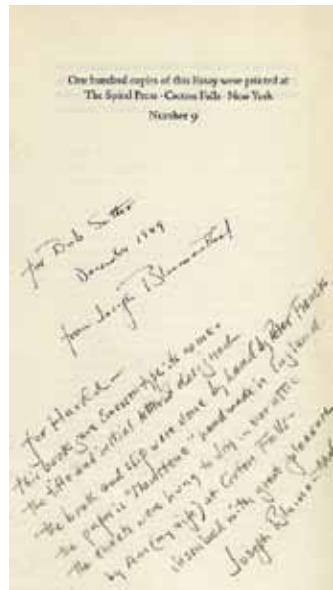 One hundred copies of this Essay were printed at
The Spiral Press · Croton Falls · New York
Number 9
for Bob
December 1949
from Joseph Blumenthal
for Harold—
this book gave Emerson type its name—
the title and initial letters designed
the book and slip were done by hand by Peter Franck
the paper is handmade in England.
The sheets were hung to dry in our attic
by Ann (my wife) at Croton Falls—
inscribed with great pleasure
Joseph